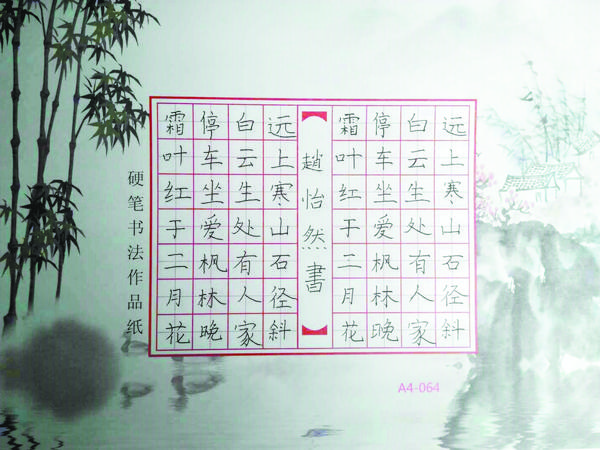 远上寒山石径斜
白云生处有人家
停车坐爱枫林晚
霜叶红于二月花
趙怡然書
远上寒山石径斜
白云生处有人家
停车坐爱枫林晚
霜叶红于二月花
硬笔书法作品纸
A4-064